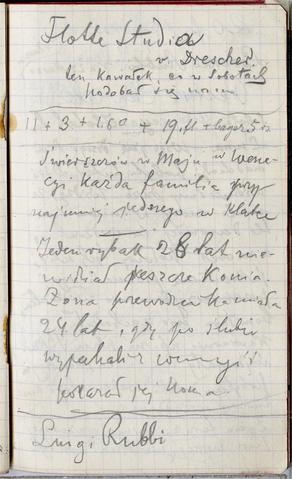 Flotte Studio
v. Drescher.
ten kawałek, co w Sobotach
podobał się nam
11 + 3 + 1.60 + 19.fl + bagaż 5
Świerszczów w Maju w Wene-
cyi każda familia przy
najmniej jednego w klatce
Jeden rybak 28 lat nie
widział jeszcze Konia.
Żona przewodnika miała
24 lat, gdy po ślubie
wyjechali z Wenecyi i
pokazał jej Konia.
Luigi Rubbi